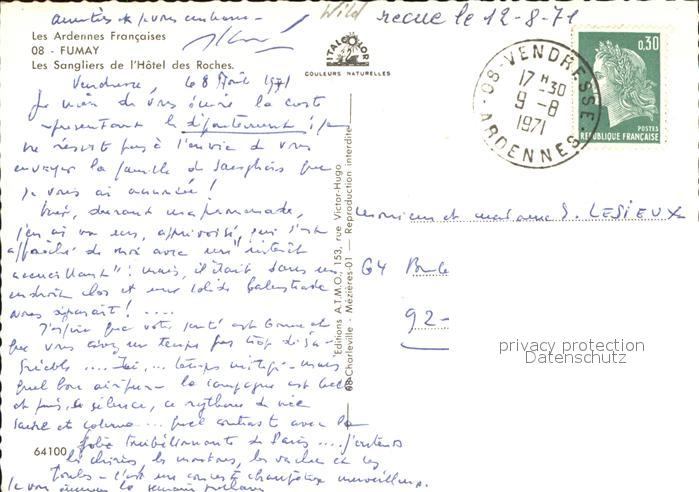 amitiés
Wild
recue le 12-8-71
Les Ardennes Françaises
08 - FUMAY
Les Sangliers de l'Hôtel des Roches.
ITALCOLOR
COULEURS NATURELLES
08 - VENDRESSE
17 H 30
9 - 8
1971
ARDENNES
0,30
POSTES
REPUBLIQUE FRANÇAISE
Vendresse, le 8 Août 1971
Je viens de vous écrire la carte
représentant le département ;
ne résiste pas à l'envie de vous
envoyer la famille de sangliers que
je vous ai annoncée !
Hier, durant ma promenade,
j'en ai vu un, apprivoisé, qui s'est
approché de moi avec un "instinct
accueillant" : mais, il était dans un
endroit clos et une solide balustrade
nous séparait ! ....
J'espère que votre santé est bonne et
que vous avez un temps pas trop désa-
gréable .... Ici, ... temps mitigé - mais
quel bon air pur - la campagne est belle
et puis, ce silence, ce rythme de vie
calme ... quel contraste avec la
folie tourbillonnante de Paris .... j'entends
les moutons, les vaches et les
poules - c'est un concert champêtre merveilleux.
Je vous
Editions A.T.M.O., 153, rue Victor-Hugo
08-Charleville - Mézières-01 — Reproduction interdite
Monsieur et Madame S. LESIEUX
64
92 -
privacy protection
Datenschutz
64100